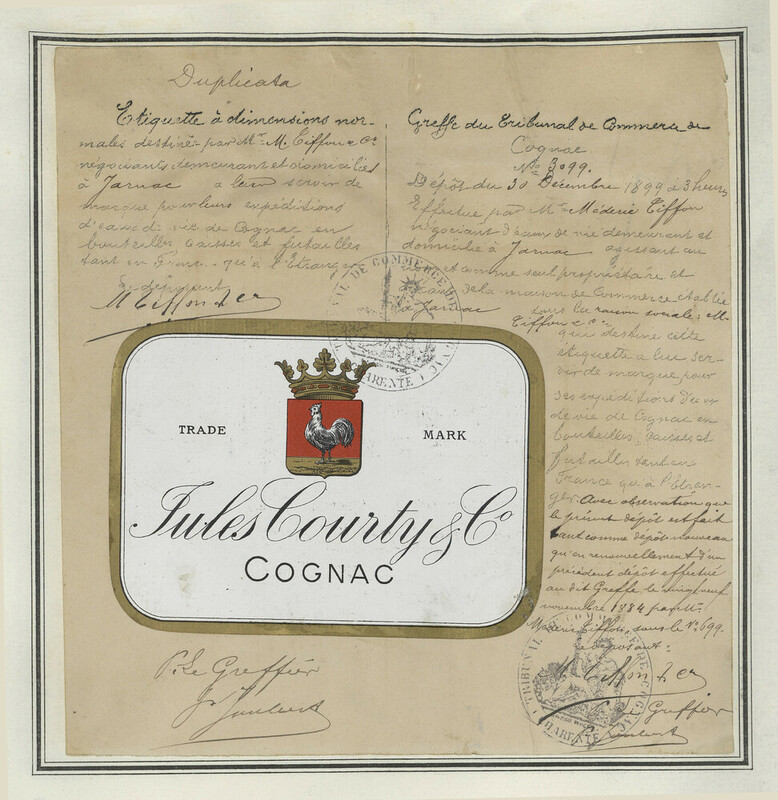 Duplicata
Etiquette à dimensions nor-
males destinée par Mr. M. Tiffon & Co
négociants demeurant et domiciliés
à Jarnac a leur servir de
marque pour leurs expéditions
d'eau de vie de Cognac en
bouteilles caisses et futailles
tant en France qu'a l'Etranger
Le déposant
M Tiffon & Co
Greffe du Tribunal de Commerce de
Cognac
No 3099.
Dépôt du 30 Décembre 1899 à 3 heures
Effectué par Mr Médéric Tiffon
négociant d'eaux de vie demeurant et
domicilié à Jarnac agissant au
et comme seul propriétaire et
de la maison de Commerce établie
à Jarnac sous la raison sociale: M.
Tiffon & Cie
qui destine cette
étiquette a lui ser-
vir de marque pour
ses expéditions d'eau
de vie de Cognac en
bouteilles, caisses et
futailles tant en
France qu'à l'Etran-
ger. Avec observation que
le présent dépôt est fait
tant comme dépôt nouveau
qu'en renouvellement d'un
précédent dépôt effectué
au dit Greffe le vingt neuf
novembre 1884 par Mr
Médéric Tiffon sous le No 699.
Le déposant:
M Tiffon & Co
Le Greffier
Joubert
TRIBUNAL DE COMMERCE DE COGNAC
CHARENTE
TRADE MARK
Jules Courty & Co
COGNAC
P. Le Greffier
Joubert
TRIBUNAL DE COMMERCE DE COGNAC
CHARENTE